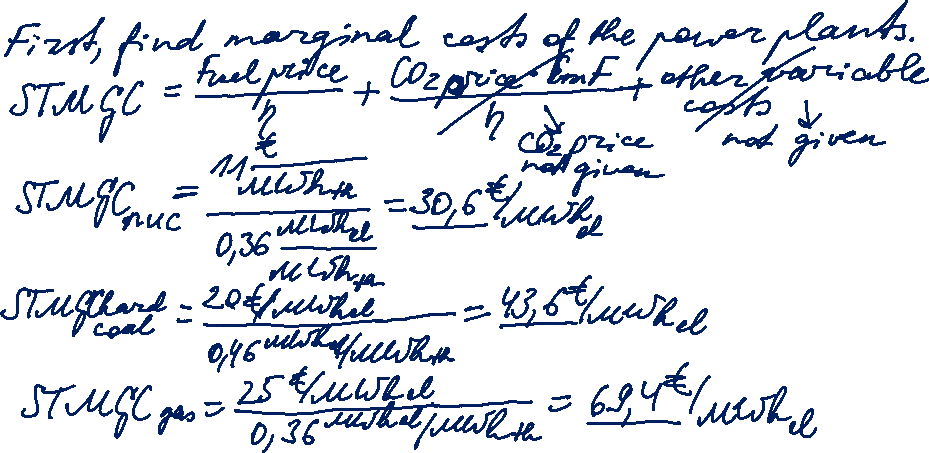 First, find marginal costs of the power plants.
STMGC = Fuel price / η + CO2 price · EmF / η + other variable costs
CO2 price not given
not given
STMGC nuc = 11 €/MWh th / 0,36 MWh el/MWh th = 30,6 €/MWh el
STMGC hard coal = 20 €/MWh el / 0,46 MWh el/MWh th = 43,6 €/MWh el
STMGC gas = 25 €/MWh el / 0,36 MWh el/MWh th = 69,4 €/MWh el